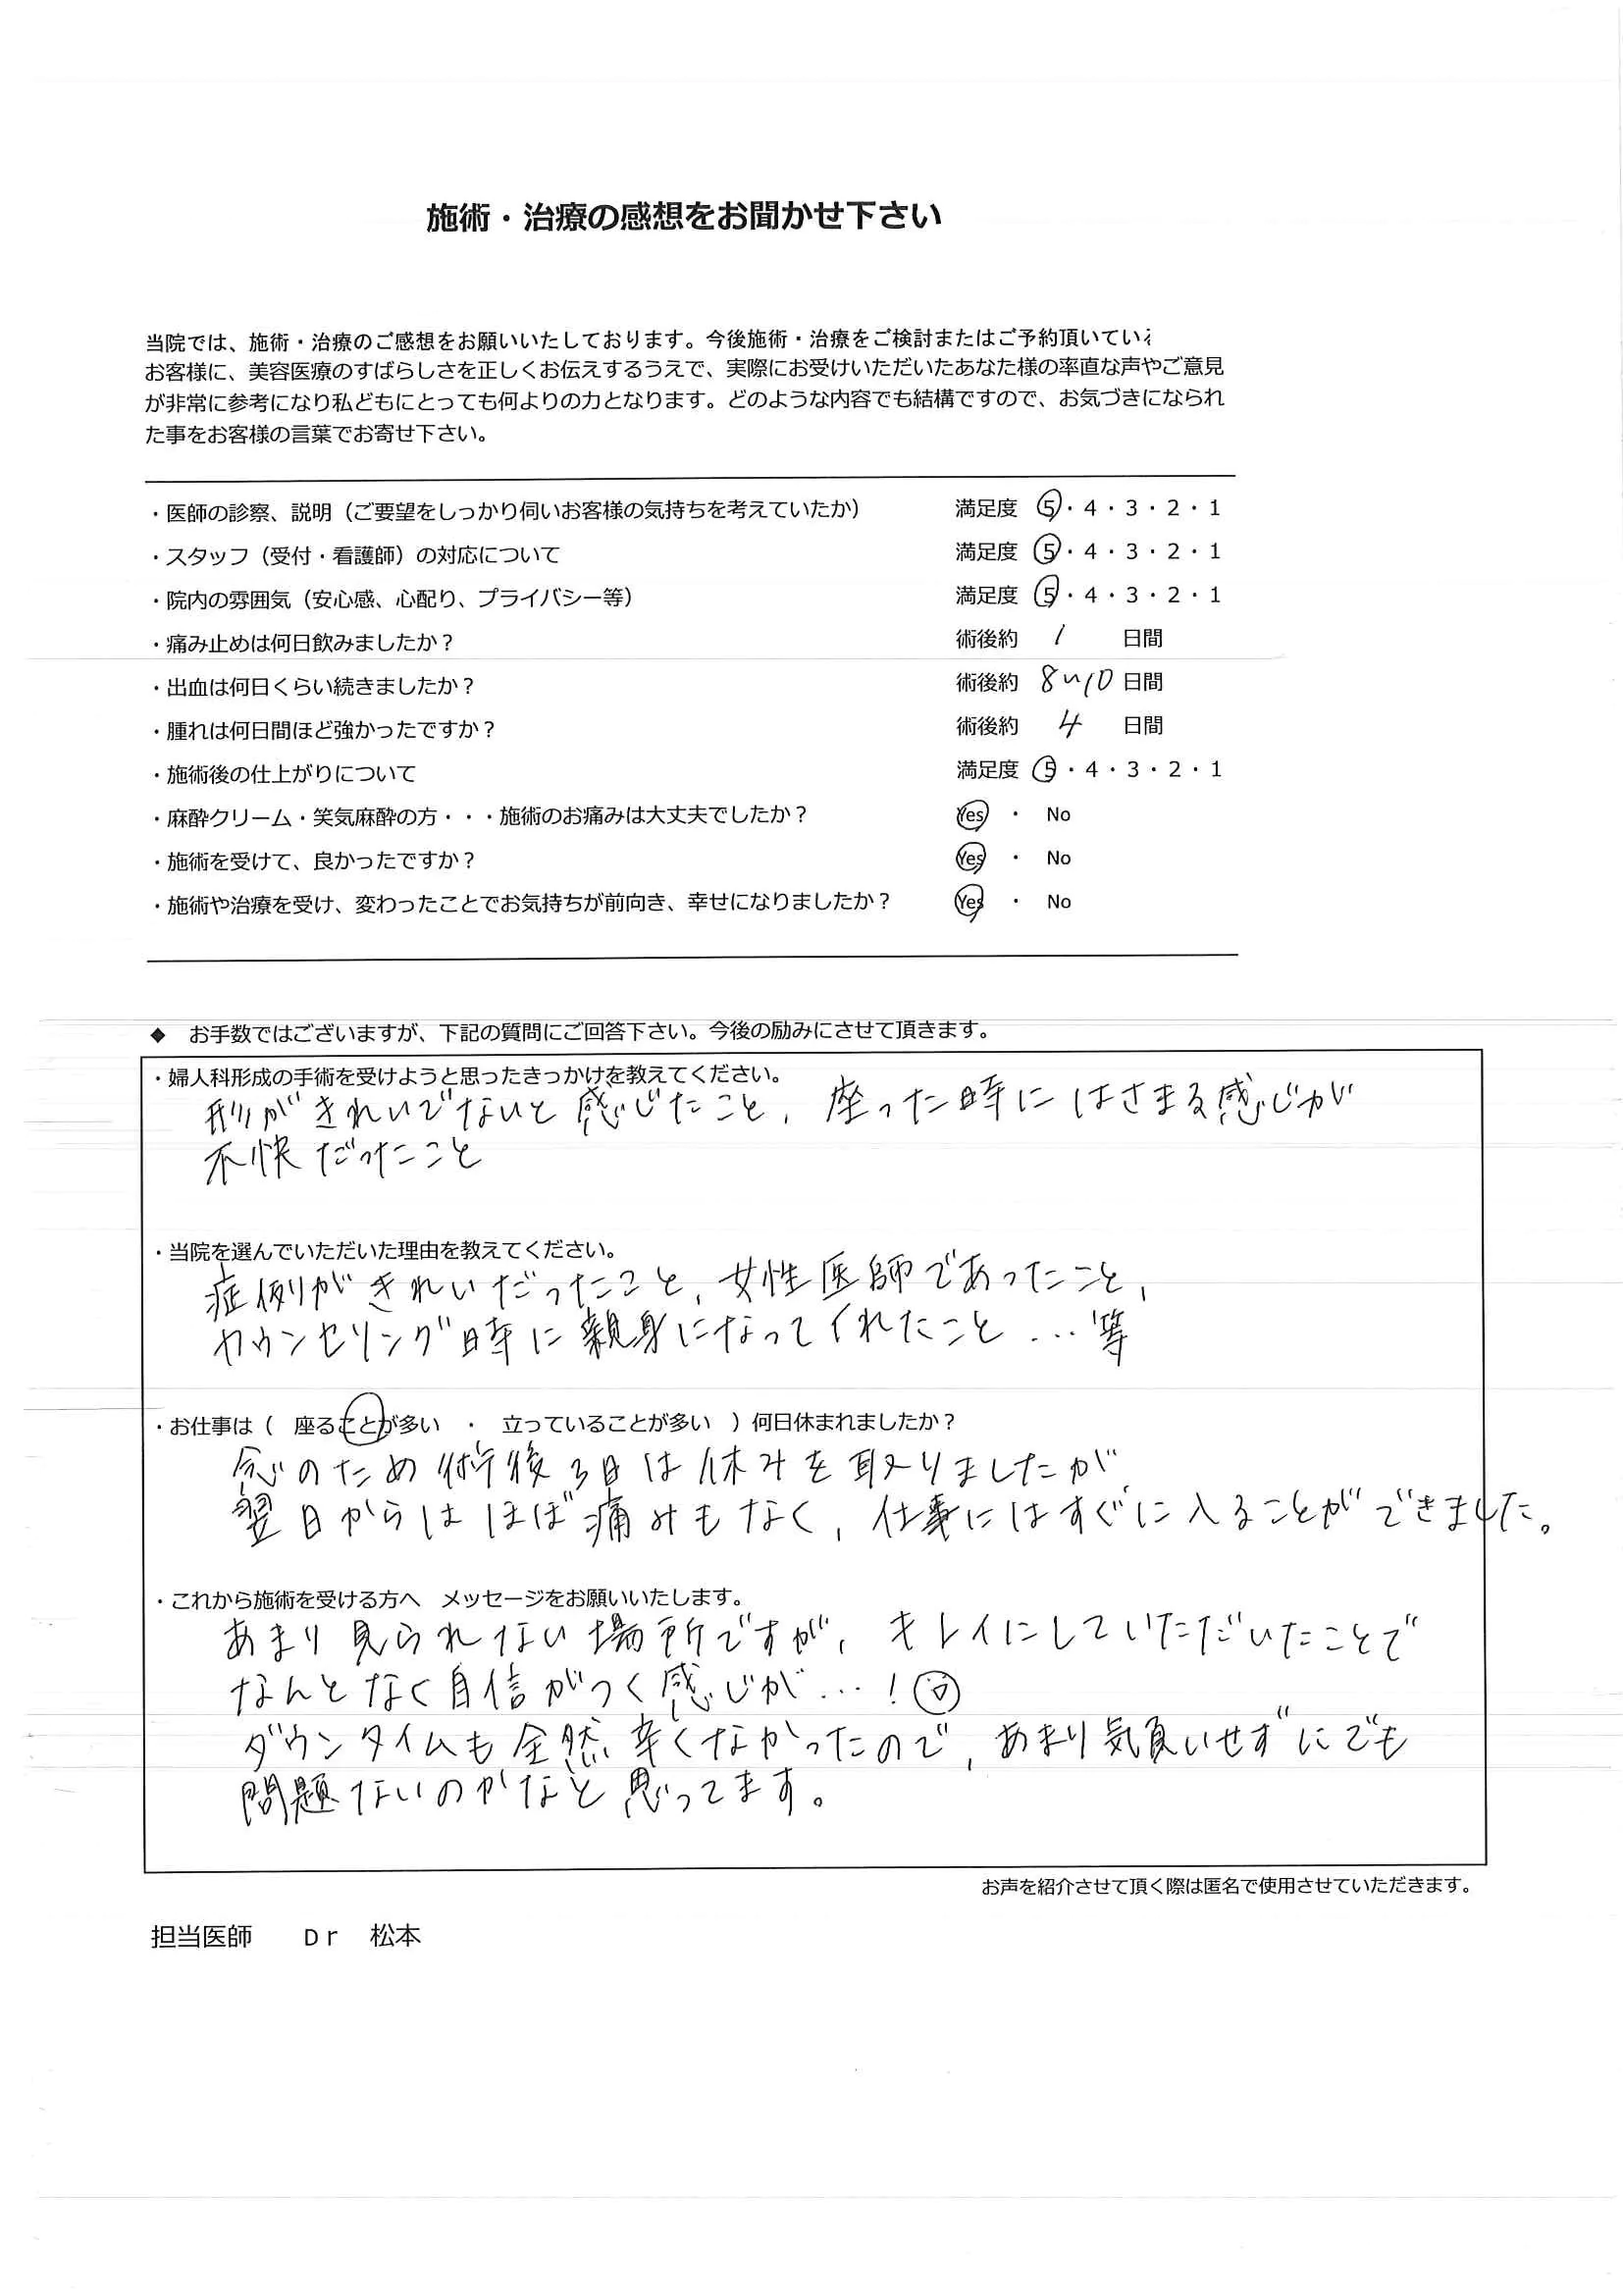 施術・治療の感想をお聞かせ下さい
当院では、施術・治療のご感想をお願いいたしております。今後施術・治療をご検討またはご予約頂いている
お客様に、美容医療のすばらしさを正しくお伝えするうえで、実際にお受けいただいたあなた様の率直な声やご意見
が非常に参考になり私どもにとっても何よりの力となります。どのような内容でも結構ですので、お気づきになられ
た事をお客様の言葉でお寄せ下さい。
・医師の診察、説明（ご要望をしっかり伺いお客様の気持ちを考えていたか） 満足度 5・4・3・2・1
・スタッフ（受付・看護師）の対応について 満足度 5・4・3・2・1
・院内の雰囲気（安心感、心配り、プライバシー等） 満足度 5・4・3・2・1
・痛み止めは何日飲みましたか？ 術後約 1 日間
・出血は何日くらい続きましたか？ 術後約 8〜10 日間
・腫れは何日間ほど強かったですか？ 術後約 4 日間
・施術後の仕上がりについて 満足度 5・4・3・2・1
・麻酔クリーム・笑気麻酔の方・・・施術のお痛みは大丈夫でしたか？ Yes ・ No
・施術を受けて、良かったですか？ Yes ・ No
・施術や治療を受け、変わったことでお気持ちが前向き、幸せになりましたか？ Yes ・ No
◆ お手数ではございますが、下記の質問にご回答下さい。今後の励みにさせて頂きます。
・婦人科形成の手術を受けようと思ったきっかけを教えてください。
形がきれいでないと感じたこと、座った時にはさまる感じが
不快だったこと
・当院を選んでいただいた理由を教えてください。
症例がきれいだったこと、女性医師であったこと、
カウンセリング時に親身になってくれたこと…等
・お仕事は（ 座ることが多い ・ 立っていることが多い ）何日休まれましたか？
念のため術後3日は休みを取りましたが
翌日からはほぼ痛みもなく、仕事にはすぐに入ることができました。
・これから施術を受ける方へ メッセージをお願いいたします。
あまり見られない場所ですが、キレイにしていただいたことで
なんとなく自信がつく感じが…！
ダウンタイムも全然辛くなかったので、あまり気負いせずにでも
問題ないのかなと思ってます。
お声を紹介させて頂く際は匿名で使用させていただきます。
担当医師 Dr 松本